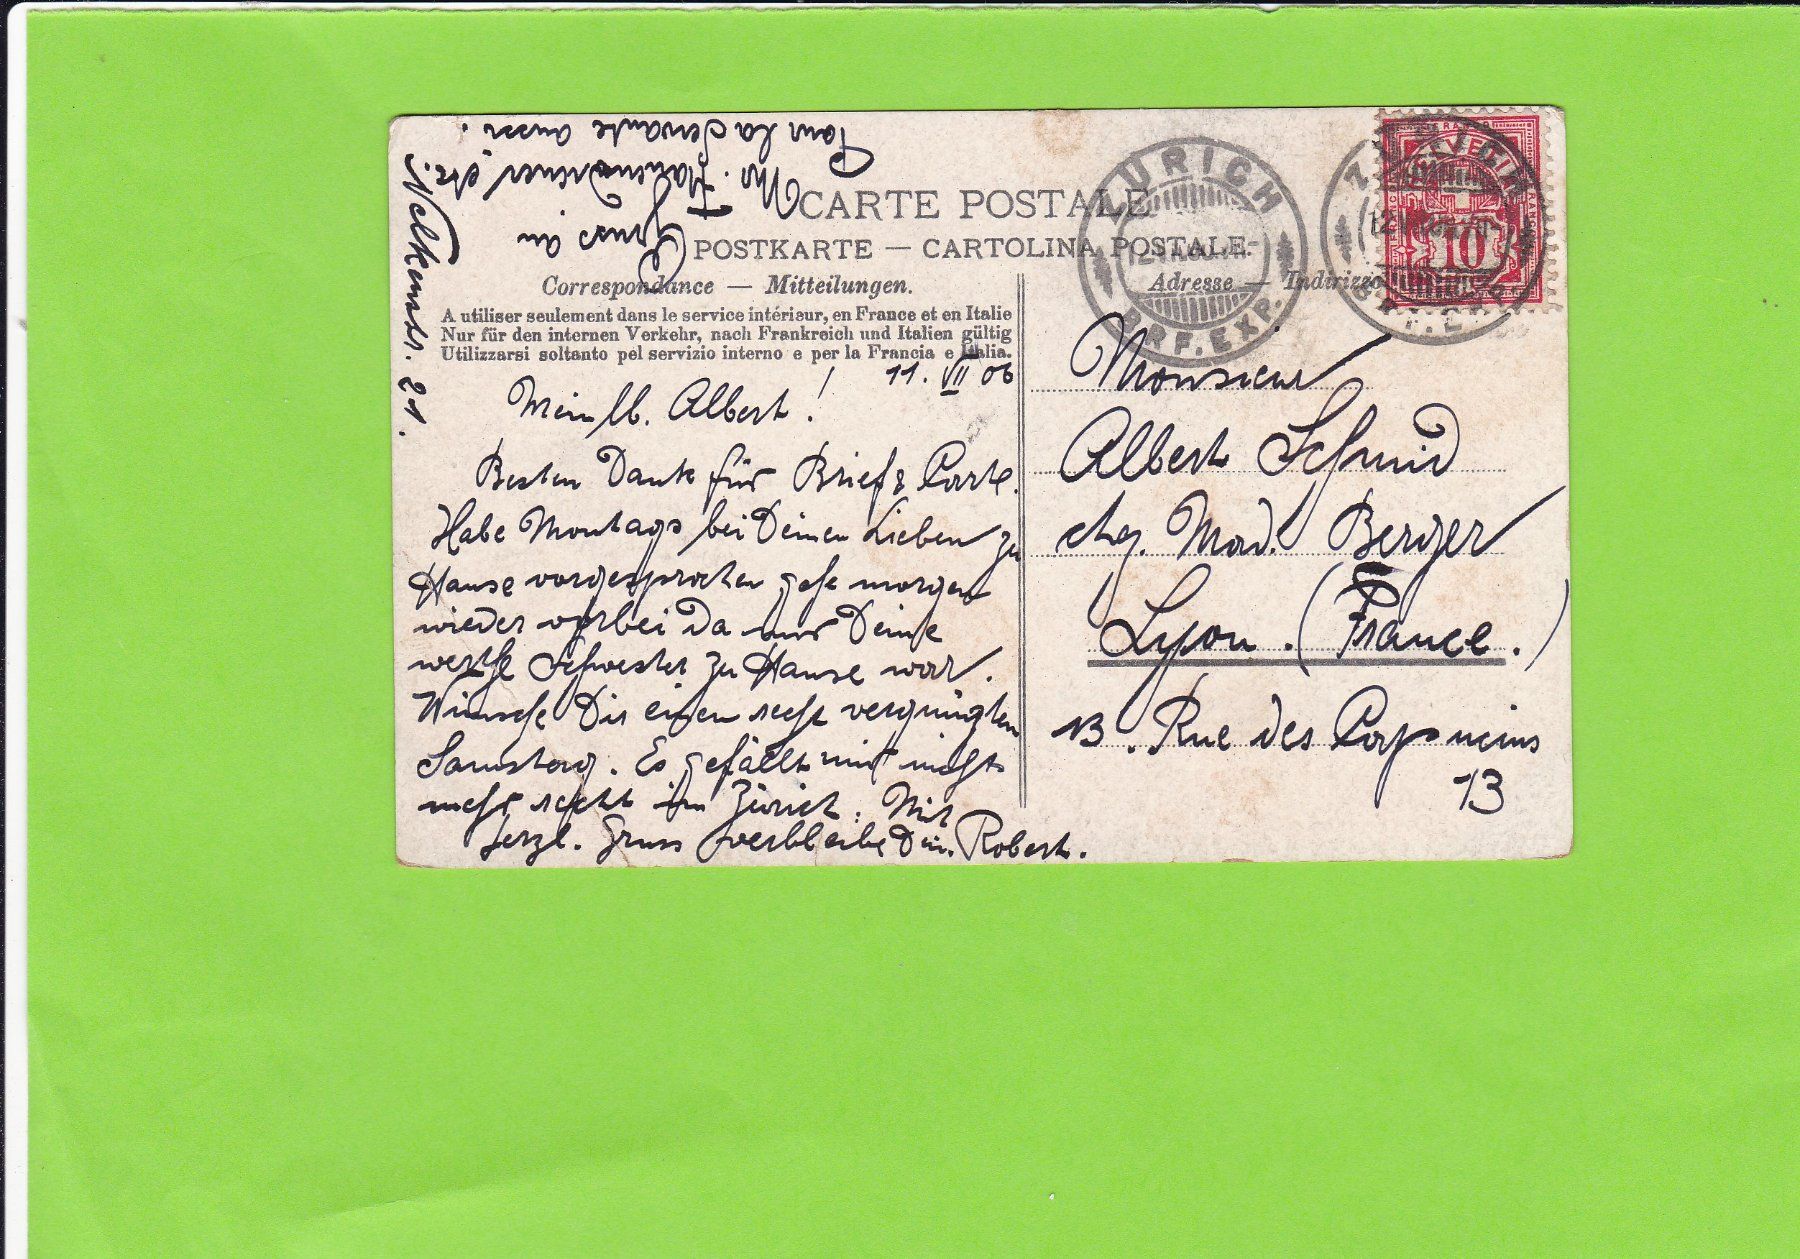 CARTE POSTALE
POSTKARTE — CARTOLINA POSTALE
Correspondance — Mitteilungen.
Adresse — Indirizzo
A utiliser seulement dans le service intérieur, en France et en Italie
Nur für den internen Verkehr, nach Frankreich und Italien gültig
Utilizzarsi soltanto pel servizio interno e per la Francia e Italia.
11. VII 06
Mein lb. Albert!
Besten Dank für Brief & Carte.
Habe Montags bei Deinen Lieben zu
Hause vorgesprochen gehe morgen
wieder vorbei da nur Deine
werthe Schwester zu Hause war.
Wünsche Dir einen recht vergnügten
Samstag. Es gefällt mir nicht
mehr recht in Zürich. Mit
herzl. Gruss verbleibe Dein Robert.
Nelkenstr. 21.
Gruss an
Mr. etc.
Pour la Servante aussi.
ZÜRICH
BRF. EXP.
ZÜRICH
HELVETIA
FRANCO
10
Monsieur
Albert Schmid
chez. Mad. Berger
Lyon. (France.)
13. Rue des Capucins
13